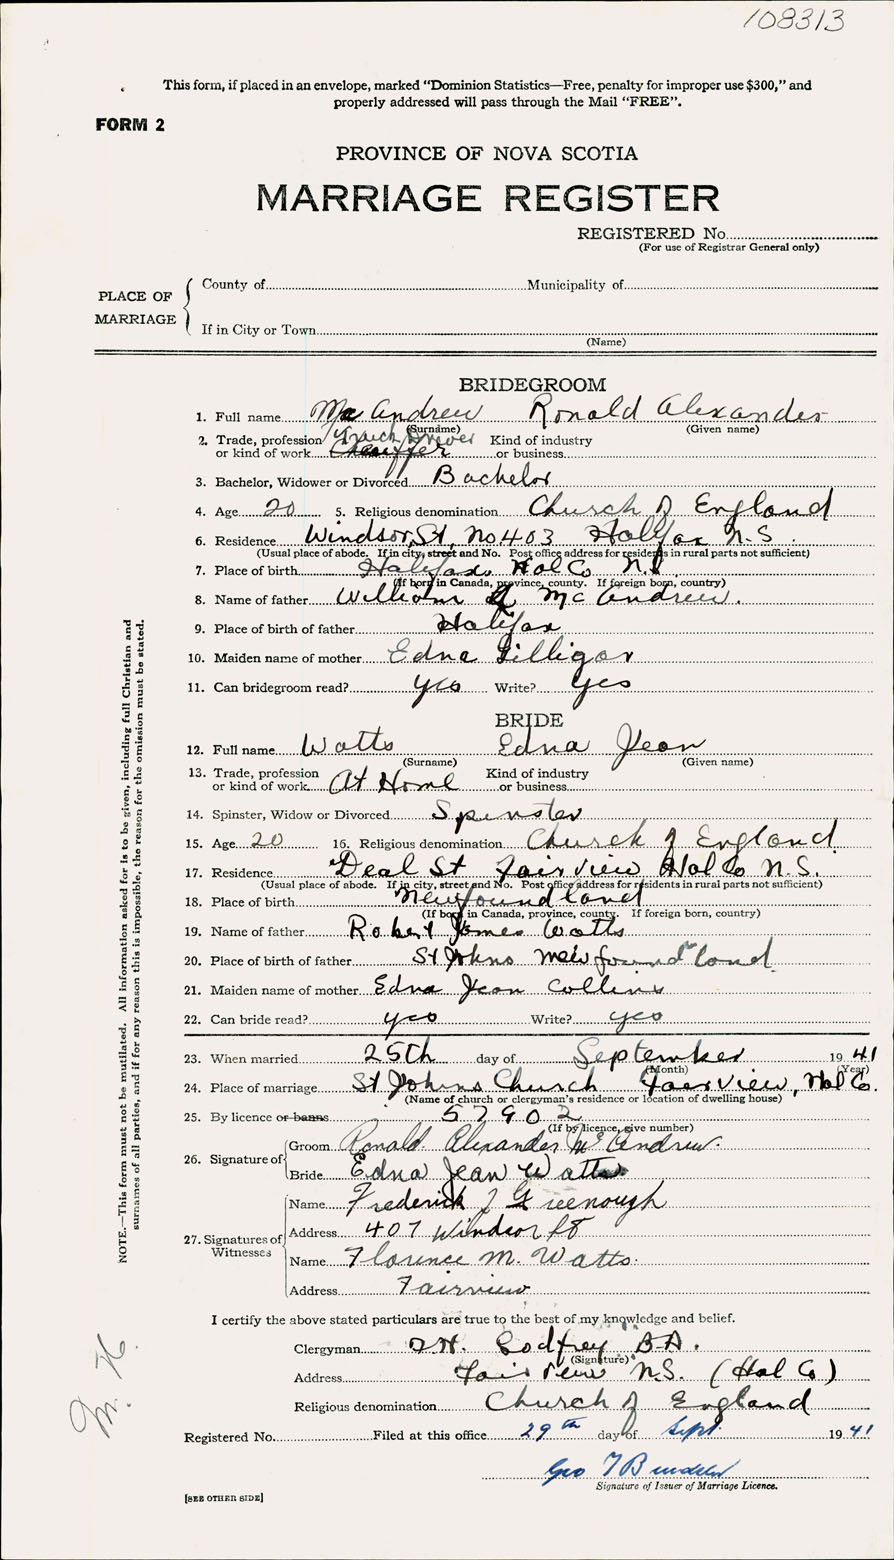 108313
This form, if placed in an envelope, marked "Dominion Statistics—Free, penalty for improper use $300," and
properly addressed will pass through the Mail "FREE".
FORM 2
PROVINCE OF NOVA SCOTIA
MARRIAGE REGISTER
REGISTERED No.
(For use of Registrar General only)
PLACE OF MARRIAGE
County of Municipality of
If in City or Town
(Name)
BRIDEGROOM
1. Full name Mc Andrew Ronald Alexander
(Surname) (Given name)
2. Trade, profession or kind of work Truck Driver Chauffer Kind of industry or business
3. Bachelor, Widower or Divorced Bachelor
4. Age 20 5. Religious denomination Church of England
6. Residence Windsor St, No 403 Halifax N.S.
(Usual place of abode. If in city, street and No. Post office address for residents in rural parts not sufficient)
7. Place of birth Halifax Hal Co N.S.
(If born in Canada, province, county. If foreign born, country)
8. Name of father William A Mc Andrew.
9. Place of birth of father Halifax
10. Maiden name of mother Edna Gilligar
11. Can bridegroom read? yes Write? yes
BRIDE
12. Full name Watts Edna Jean
(Surname) (Given name)
13. Trade, profession or kind of work At Home Kind of industry or business
14. Spinster, Widow or Divorced Spinster
15. Age 20 16. Religious denomination Church of England
17. Residence Deal St Fairview Hal Co N.S.
(Usual place of abode. If in city, street and No. Post office address for residents in rural parts not sufficient)
18. Place of birth Newfoundland
(If born in Canada, province, county. If foreign born, country)
19. Name of father Robert James Watts
20. Place of birth of father St Johns Newfoundland
21. Maiden name of mother Edna Jean Collins
22. Can bride read? yes Write? yes
23. When married 25th day of September 1941
(Month) (Year)
24. Place of marriage St Johns Church Fairview, Hal Co.
(Name of church or clergyman's residence or location of dwelling house)
25. By licence or banns 57902
(If by licence, give number)
26. Signature of
Groom Ronald Alexander McAndrew.
Bride Edna Jean Watts
27. Signatures of Witnesses
Name Frederick J Greenough
Address 407 Windsor St
Name Florence M. Watts.
Address Fairview
I certify the above stated particulars are true to the best of my knowledge and belief.
Clergyman H. Godfrey B.A.
(Signature)
Address Fairview N.S. (Hal Co)
Religious denomination Church of England
Registered No. Filed at this office 29th day of Sept. 1941
Geo
Signature of Issuer of Marriage Licence.
[SEE OTHER SIDE]
NOTE.—This form must not be mutilated. All information asked for is to be given, including full Christian and
surnames of all parties, and if for any reason this is impossible, the reason for the omission must be stated.